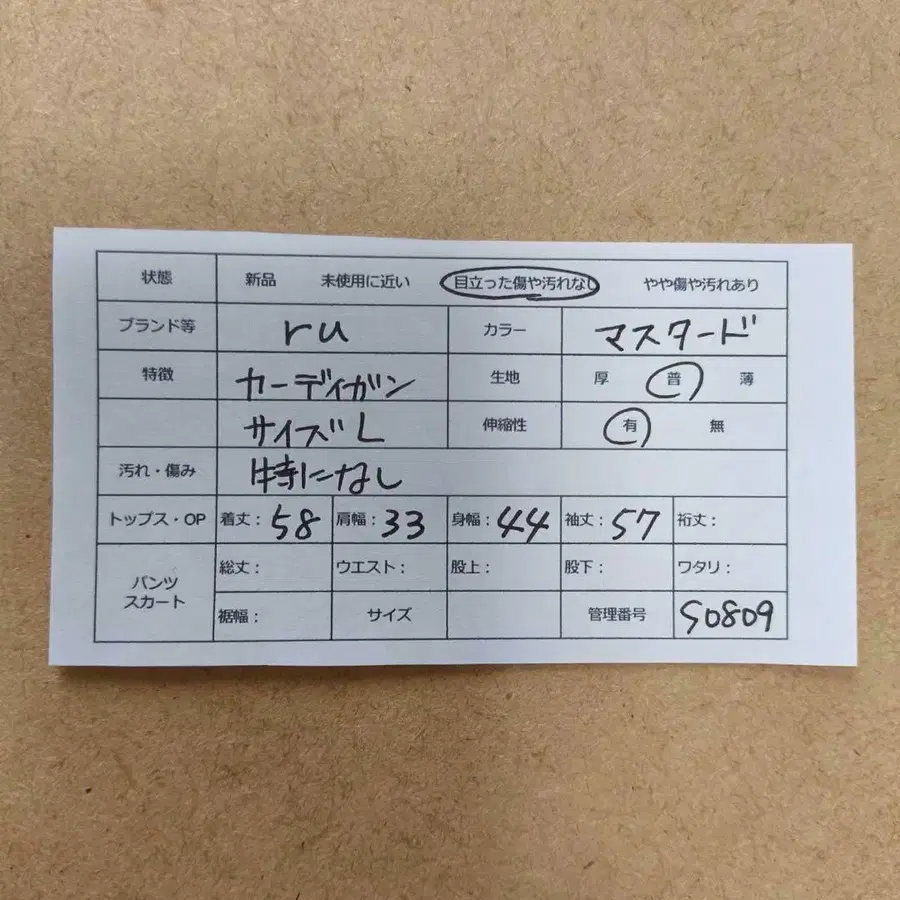 状態 新品 未使用に近い 目立った傷や汚れなし やや傷や汚れあり
ブランド等 ru カラー マスタード
特徴 カーディガン 生地 厚 普 薄
サイズL 伸縮性 有 無
汚れ・傷み 特になし
トップス・OP 着丈: 58 肩幅: 33 身幅: 44 袖丈: 57 裄丈:
パンツ スカート 総丈: ウエスト: 股上: 股下: ワタリ:
裾幅: サイズ 管理番号 S0809